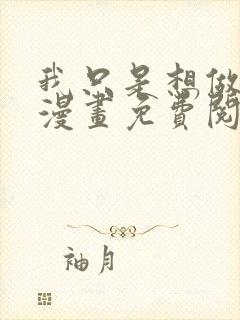 我只是想做
漫畫免費閱
袖月